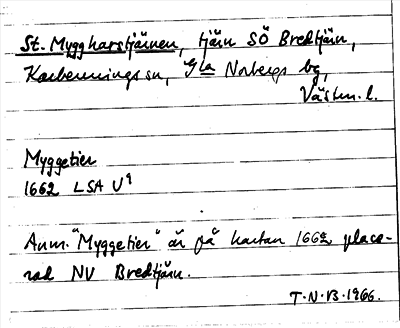 St. Myggharstjärnen, tjärn SÖ Bredtjärn,
Karbennings sn, Gla Norbergs bg,
Västm. l.
Myggetier
1662 LSA U9
Anm. "Myggetier" är på kartan 1662 place-
rad NV Bredtjärn.
T.N.B. 1966.